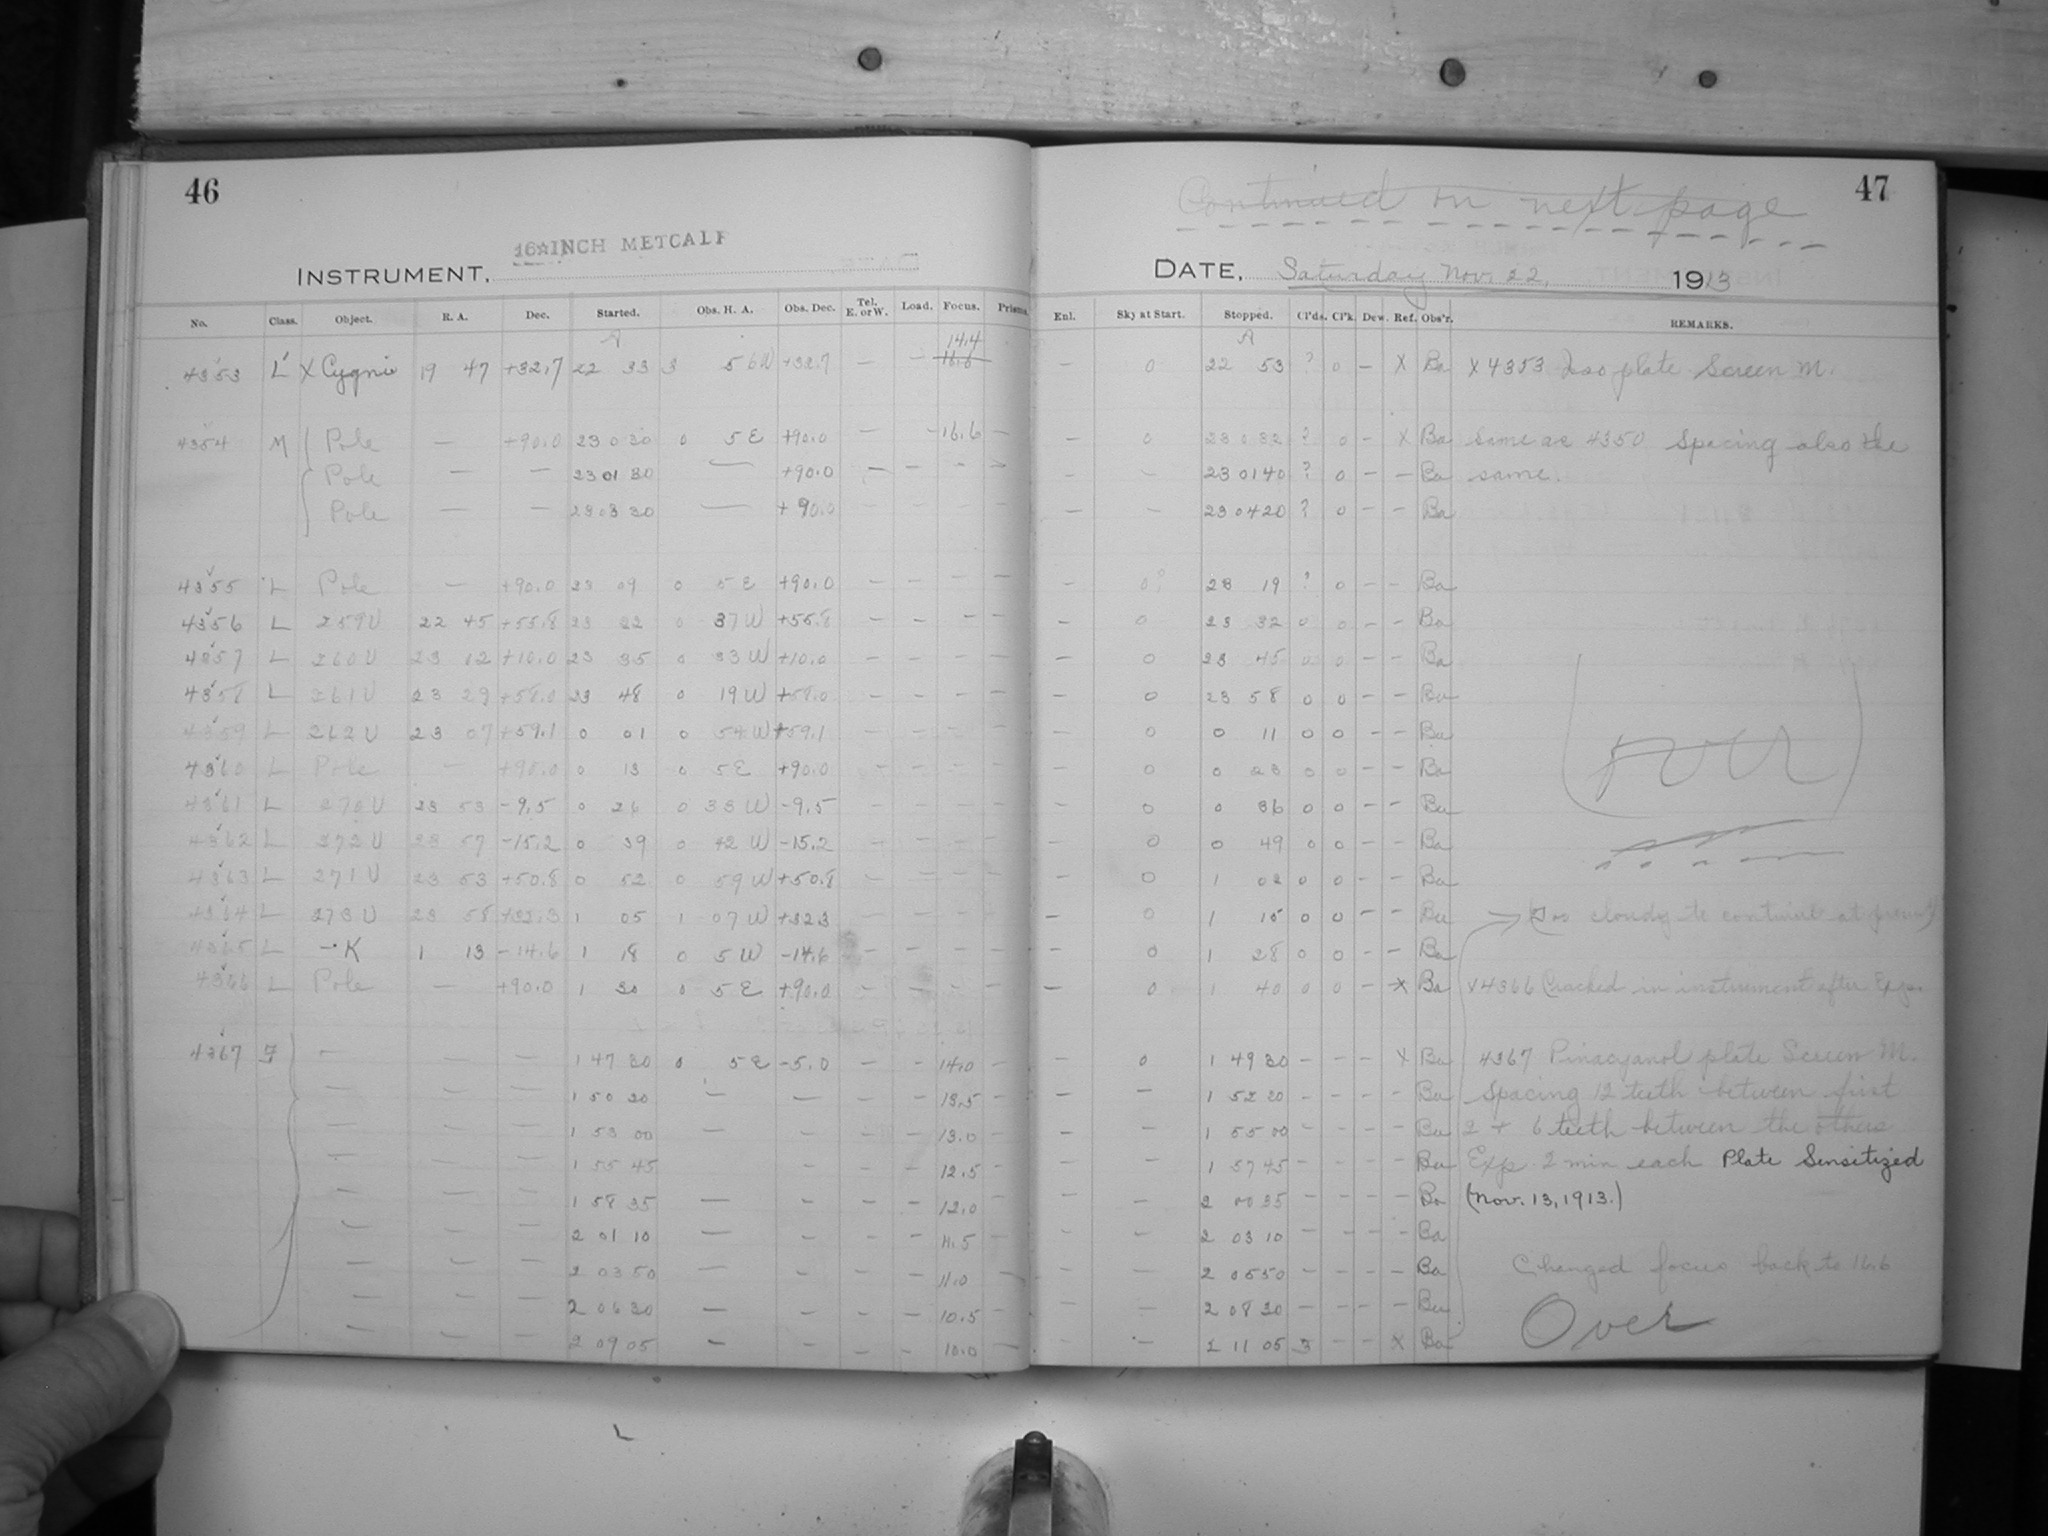 46
16 INCH METCALF
INSTRUMENT,
No. Class. Object. R. A. Dec. Started. Obs. H. A. Obs. Dec. Tel. E. or W. Load. Focus. Prisms.
A 14.4
4353 L X Cygni 19 47 +32.7 22 33 3 56W +32.7 — — 16.6
4354 M Pole — +90.0 23 0 20 0 5E +90.0 — — 16.6 —
Pole — — 23 01 30 — +90.0 — — — —
Pole — — 23 03 30 — +90.0
4355 L Pole — +90.0 23 09 0 5E +90.0 — — — —
4356 L 259U 22 45 +55.8 23 22 0 37W +55.8 — — — —
4357 L 260U 23 12 +10.0 23 35 0 33W +10.0 — — — —
4358 L 261U 23 29 +58.0 23 48 0 19W +58.0 — — — —
4359 L 262U 23 07 +59.1 0 01 0 54W +59.1 — — — —
4360 L Pole — +90.0 0 13 0 5E +90.0 — — — —
4361 L 270U 23 53 -9.5 0 26 0 33W -9.5 — — — —
4362 L 272U 23 57 -15.2 0 39 0 42W -15.2 — — — —
4363 L 271U 23 53 +50.8 0 52 0 59W +50.8 — — — —
4364 L 273U 23 58 +32.3 1 05 1 07W +32.3 — — — —
4365 L -K 1 13 -14.6 1 18 0 5W -14.6 — — — —
4366 L Pole — +90.0 1 30 0 5E +90.0 — — — —
4367 F — — — 1 47 30 0 5E -5.0 — — 14.0 —
— — — 1 50 20 — — — — 13.5 —
— — — 1 53 00 — — — 13.0 —
— — — 1 55 45 — — 12.5 —
— — — 1 58 35 — — — 12.0 —
— — — 2 01 10 — — — — 11.5 —
— — — 2 03 50 — — — — 11.0 —
— — — 2 06 30 — — — — 10.5 —
— — — 2 09 05 — — — — 10.0 —
47
Continued on next page
DATE, Saturday Nov. 22, 1913
Enl. Sky at Start. Stopped. Cl'ds. Cl'k. Dew. Ref. Obs'r. REMARKS.
A
— 0 22 53 ? 0 — X Ba X 4353 Iso plate Screen M.
— 0 23 0 32 ? 0 — X Ba Same as 4350 Spacing also the
— — 23 01 40 ? 0 — — Ba same.
— — 23 04 20 ? 0 — — Ba
— 0? 23 19 ? 0 — — Ba
— 0 23 32 0 0 — — Ba
— 0 23 45 0 0 — — Ba
— 0 23 58 0 0 — — Ba
0 0 11 0 0 — — Ba
0 0 23 0 0 — — Ba
over
0 0 36 0 0 — — Ba
0 0 49 0 0 — — Ba
0 1 02 0 0 — — Ba
— 0 1 15 0 0 — — Ba Too cloudy to continue at present
— 0 1 28 0 0 — — Ba
— 0 1 40 0 0 — X Ba X4366 Cracked in instrument after Exp.
— 0 1 49 30 — — — X Ba 4367 Pinacyanol plate Screen M.
— — 1 52 20 — — — — Ba Spacing 12 teeth between first
— — 1 55 00 — — — — Ba 2 + 6 teeth between the others
— — 1 57 45 — — — — Ba Exp. 2 min each Plate Sensitized
— — 2 00 35 — — — — Ba (Nov. 13, 1913.)
— — 2 03 10 — — — — Ba
— — 2 05 50 — — — — Ba Changed focus back to 16.6
— — 2 08 30 — — — — Ba
Over
— — 2 11 05 3 — — X Ba